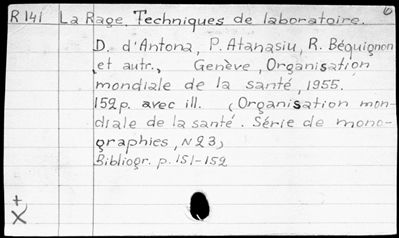 R 141 La Rage, Techniques de laboratoire.
D. d'Antona, P. Atanasiu, R. Béquignon
et autr., Genève, Organisation
mondiale de la santé, 1955.
152 p. avec ill. (Organisation mon-
diale de la santé. Série de mono-
graphies, N 23)
Bibliogr. p. 151-152
+
X